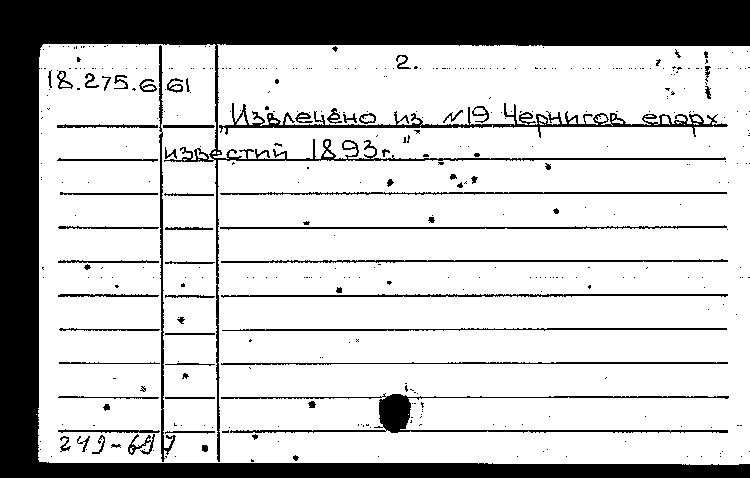 2.
18.275.6 61
„Извлечено из №19 Чернигов епарх
известий 1893г."
249-697